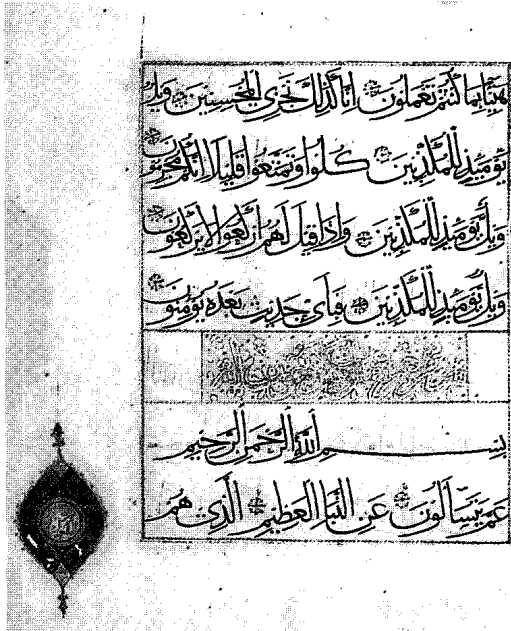 هنيئا بما كنتم تعملون انا كذلك نجزي المحسنين ويل
يومئذ للمكذبين كلوا وتمتعوا قليلا انكم مجرمون
ويل يومئذ للمكذبين واذا قيل لهم اركعوا لا يركعون
ويل يومئذ للمكذبين فبأي حديث بعده يؤمنون
بسم الله الرحمن الرحيم
عم يتساءلون عن النبأ العظيم الذي هم